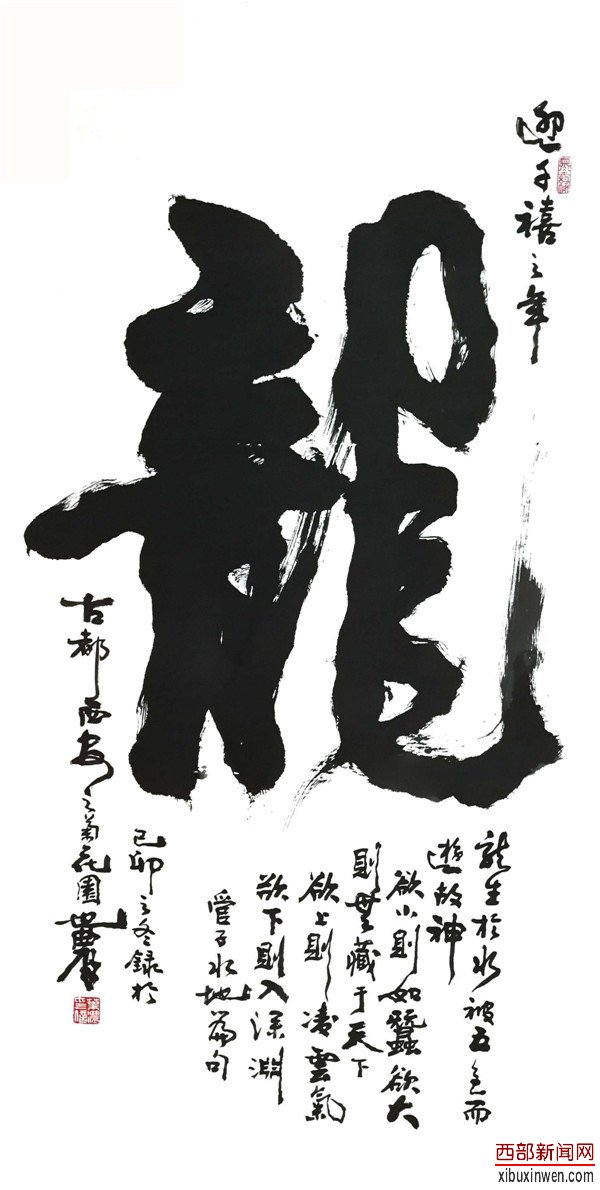 千禧之年
龍
龍生於水被五色而
遊故神
欲小則如蠶欲大
則藏于天下
欲上則凌雲氣
欲下則入深淵
管子水地篇句
己卯之冬録於
古都西安之菊花園
西部新闻网
xibuxinwen.com